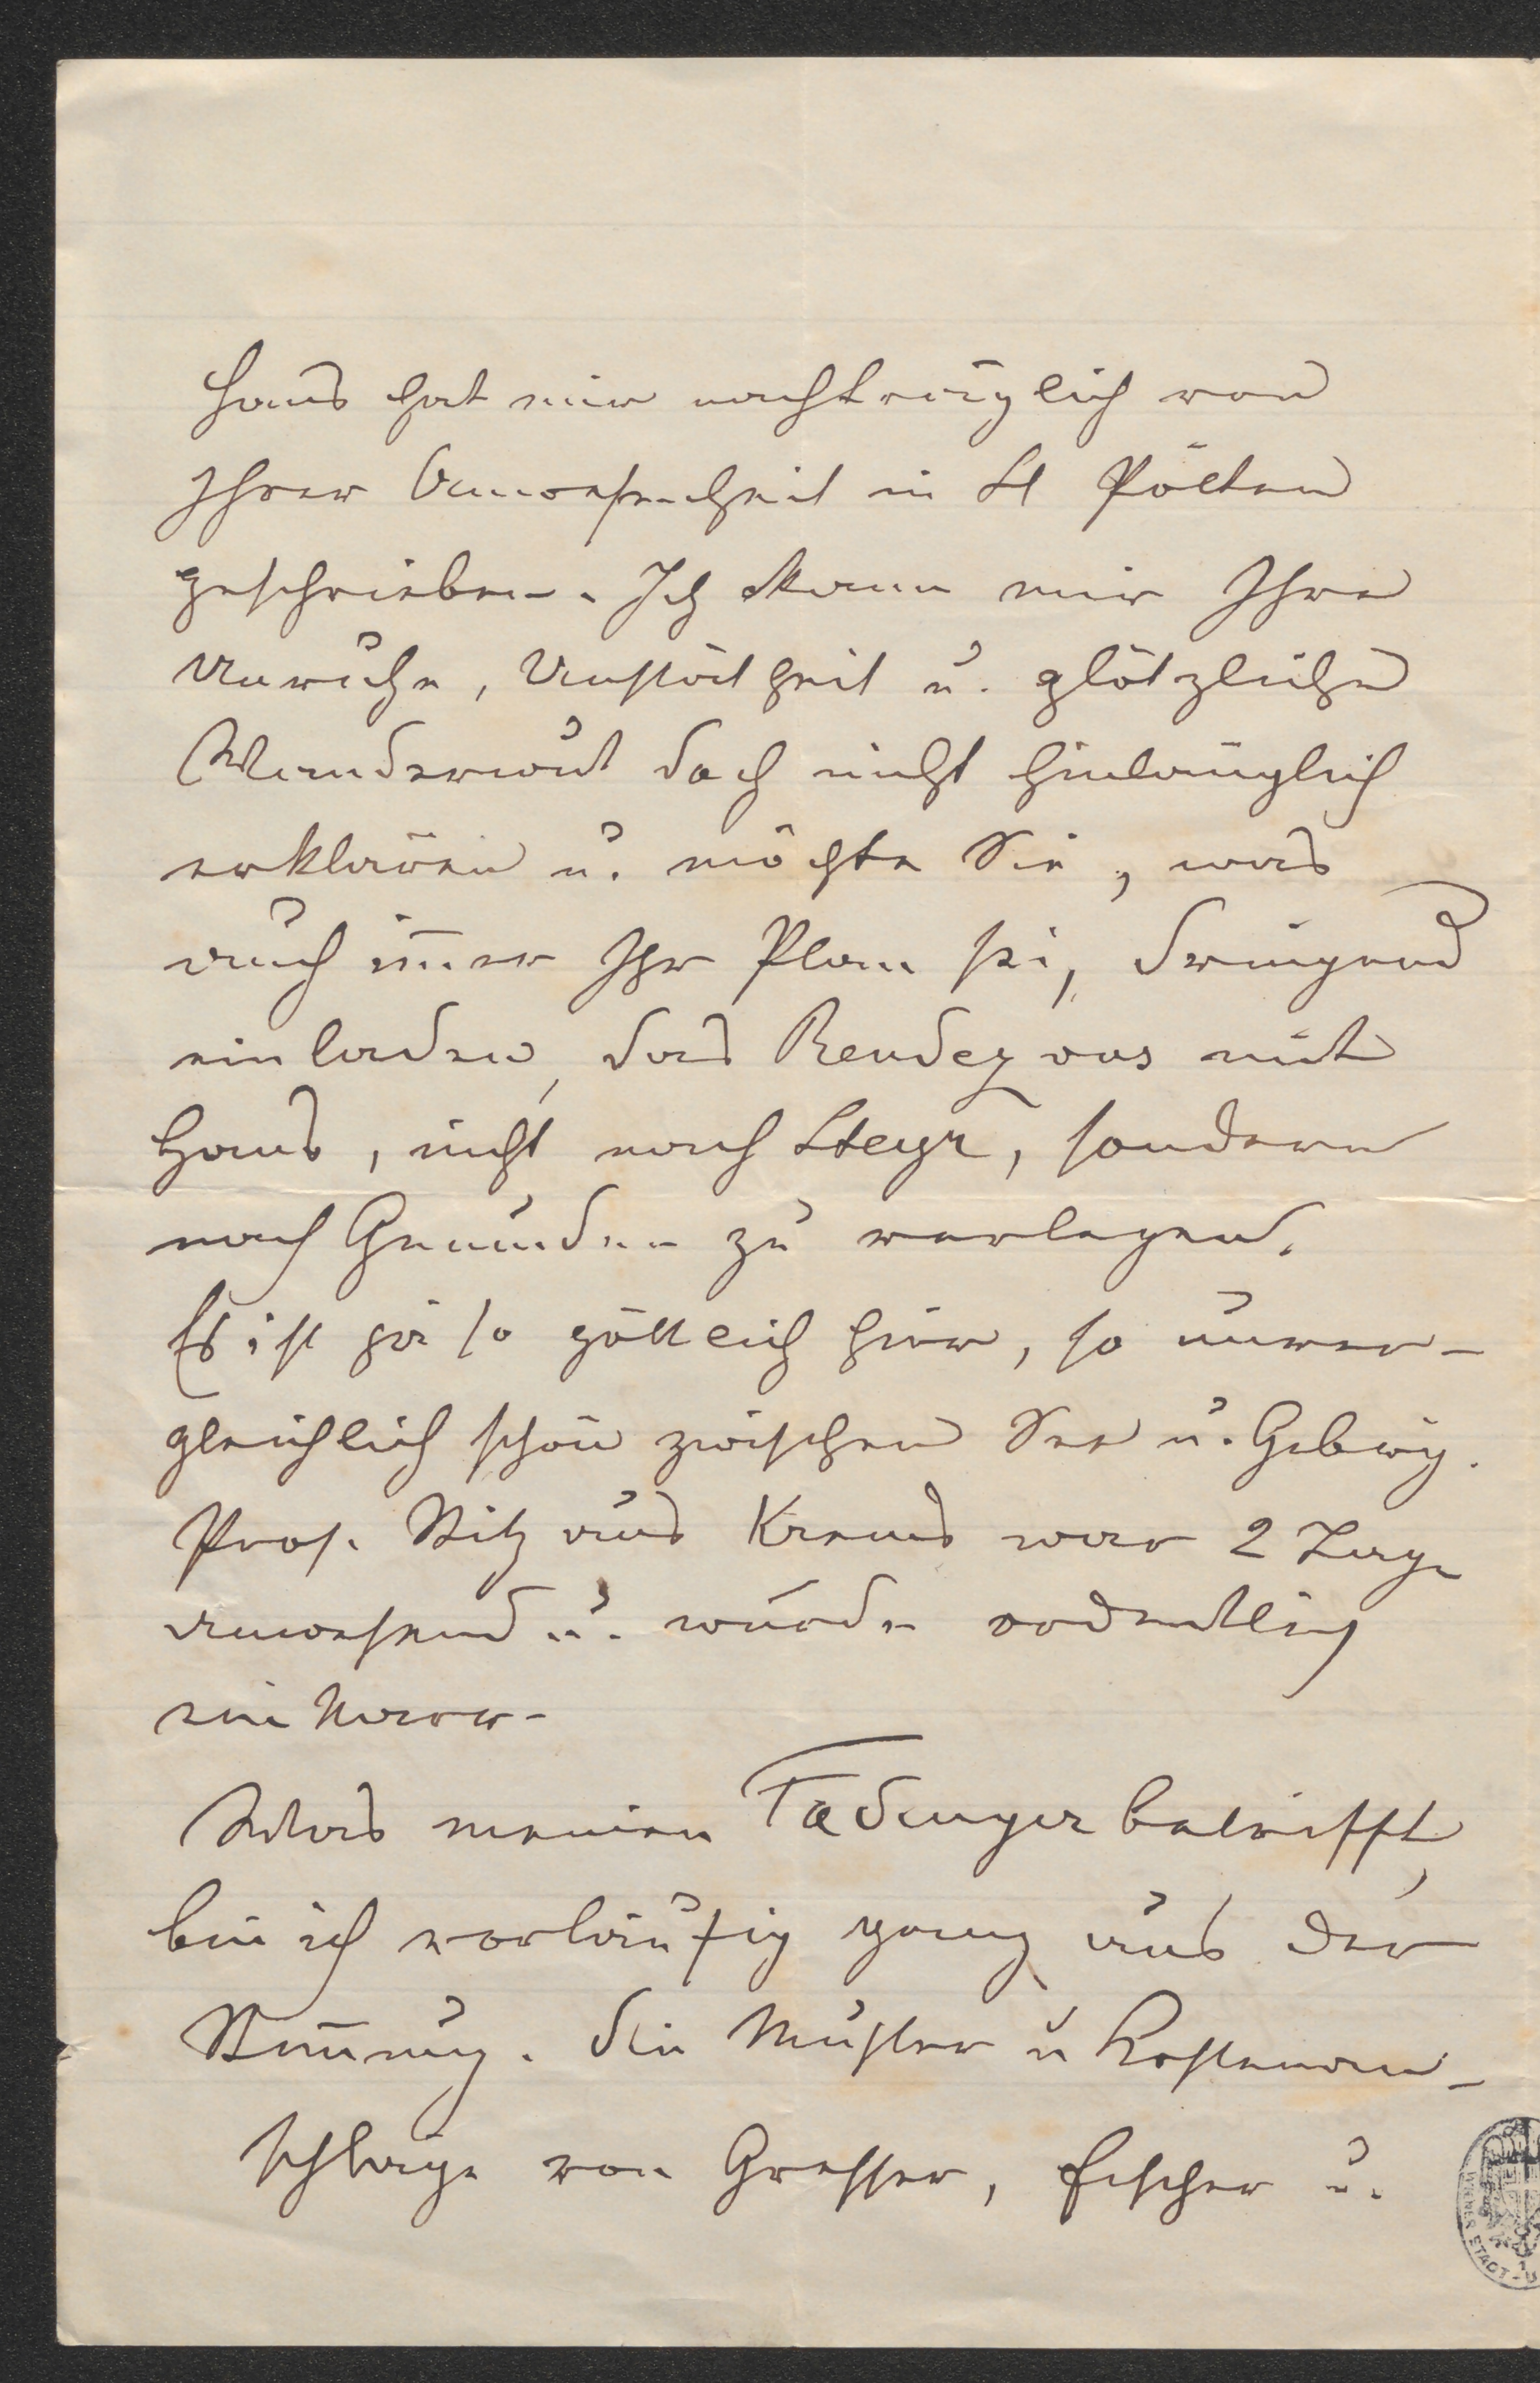 Hans hat mir nachträglich von
Ihrer Anwesenheit in St Pölten
geschrieben. Ich kann mir Ihre
Unruhe, Unstätheit u. plötzliche
Wanderwut doch nicht hinlänglich
erklären u. möchte Sie, was
auch im̅er Ihr Plan sei, dringend
einladen, das Rendez vous mit
Hans, nicht nach Steyr, sondern
nach Gmunden zu verlegen.
Es ist ja so göttlich hier, so unver-
gleichlich schön zwischen See u. Gebirg.
Prof. aus Krems war 2 Tage
anwesend u. wurde ordentlich
ein Narr.
Was meinen Fadinger betrifft,
bin ich vorläufig ganz aus der
Stim̅ung. Die Muster u Kostenan-
schläge von Gresser, Fischer u.
WIENER STADT-U